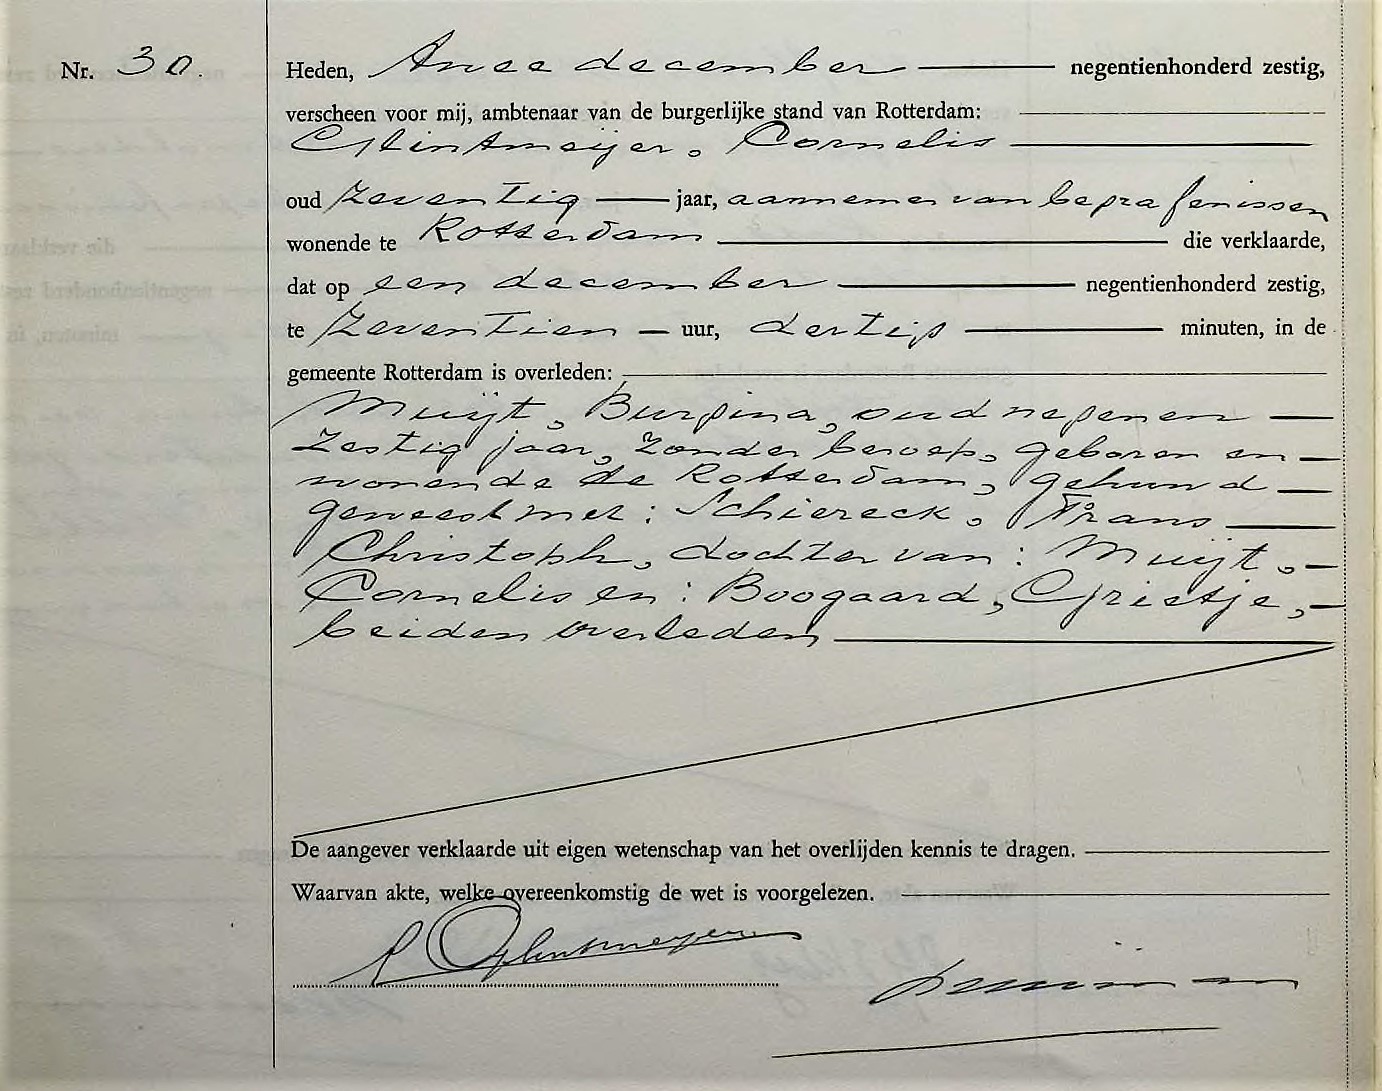 Nr. 30.
Heden, twee december negentienhonderd zestig,
verscheen voor mij, ambtenaar van de burgerlijke stand van Rotterdam:
Glintmeijer, Cornelis
oud zeventig jaar, aannemer van begrafenissen
wonende te Rotterdam die verklaarde,
dat op een december negentienhonderd zestig,
te zeventien uur, dertig minuten, in de
gemeente Rotterdam is overleden:
Muijt, Burgina, oud negenen
zestig jaar, zonder beroep, geboren en
wonende te Rotterdam, gehuwd
geweest met: Schiereck, Frans
Christoph, dochter van: Muijt,
Cornelis en: Boogaard, Grietje,
beiden overleden
De aangever verklaarde uit eigen wetenschap van het overlijden kennis te dragen.
Waarvan akte, welke overeenkomstig de wet is voorgelezen.
Glintmeijer